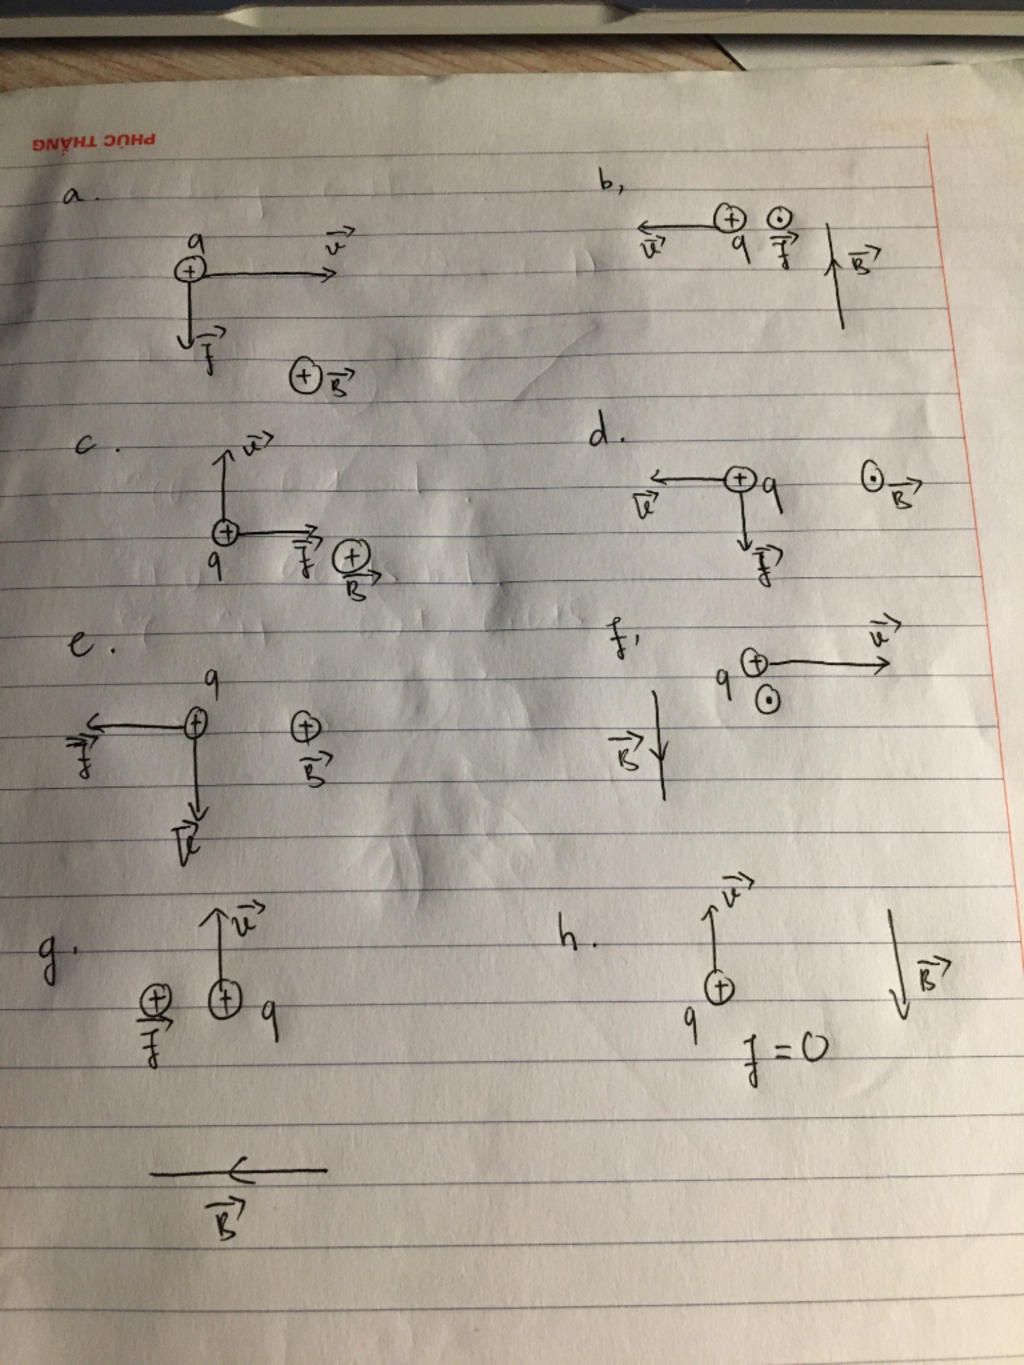 PHÚC THẮNG
a.
q
v
f
B
b,
v
q
f
B
c.
v
q
f
B
d.
v
q
B
f
e.
q
f
B
v
f,
v
q
B
g.
v
f
q
B
h.
v
q
B
f = 0